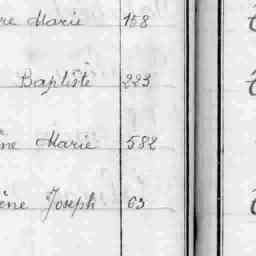 re Marie 158
Baptiste 223
ne Marie 582
ène Joseph 63